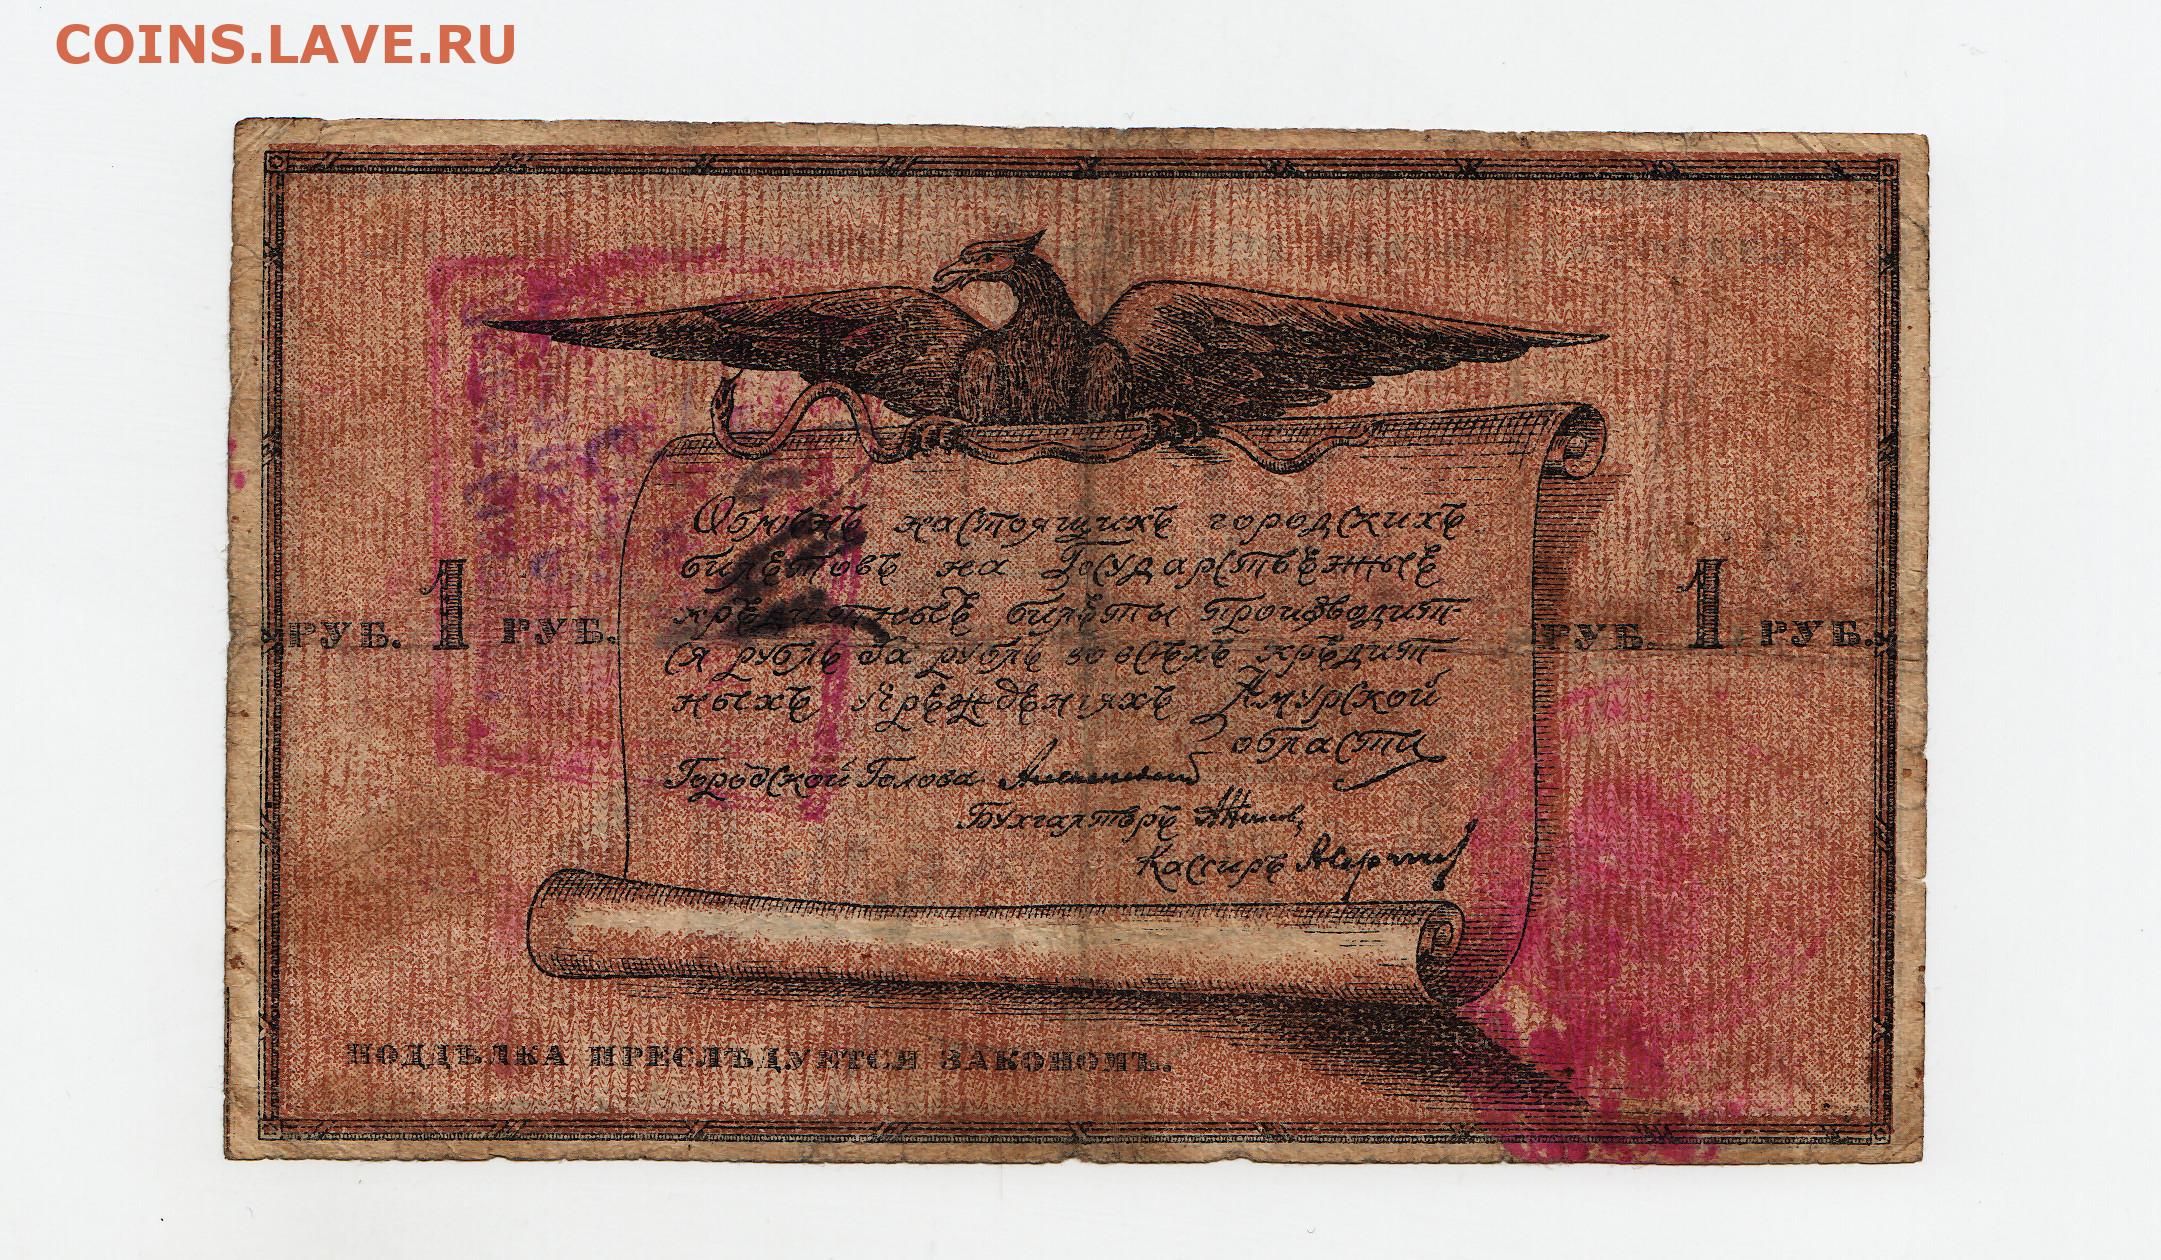 COINS.LAVE.RU
Обмѣнъ настоящихъ городскихъ
билетовъ на Государственные
кредитные билеты производит-
ся рубль за рубль во всѣхъ кредит-
ныхъ учрежденіяхъ Амурской
области
РУБ. 1 РУБ. РУБ. 1 РУБ.
Городской Голова
Бухгалтеръ
Кассиръ
ПОДДѢЛКА ПРЕСЛѢДУЕТСЯ ЗАКОНОМЪ.